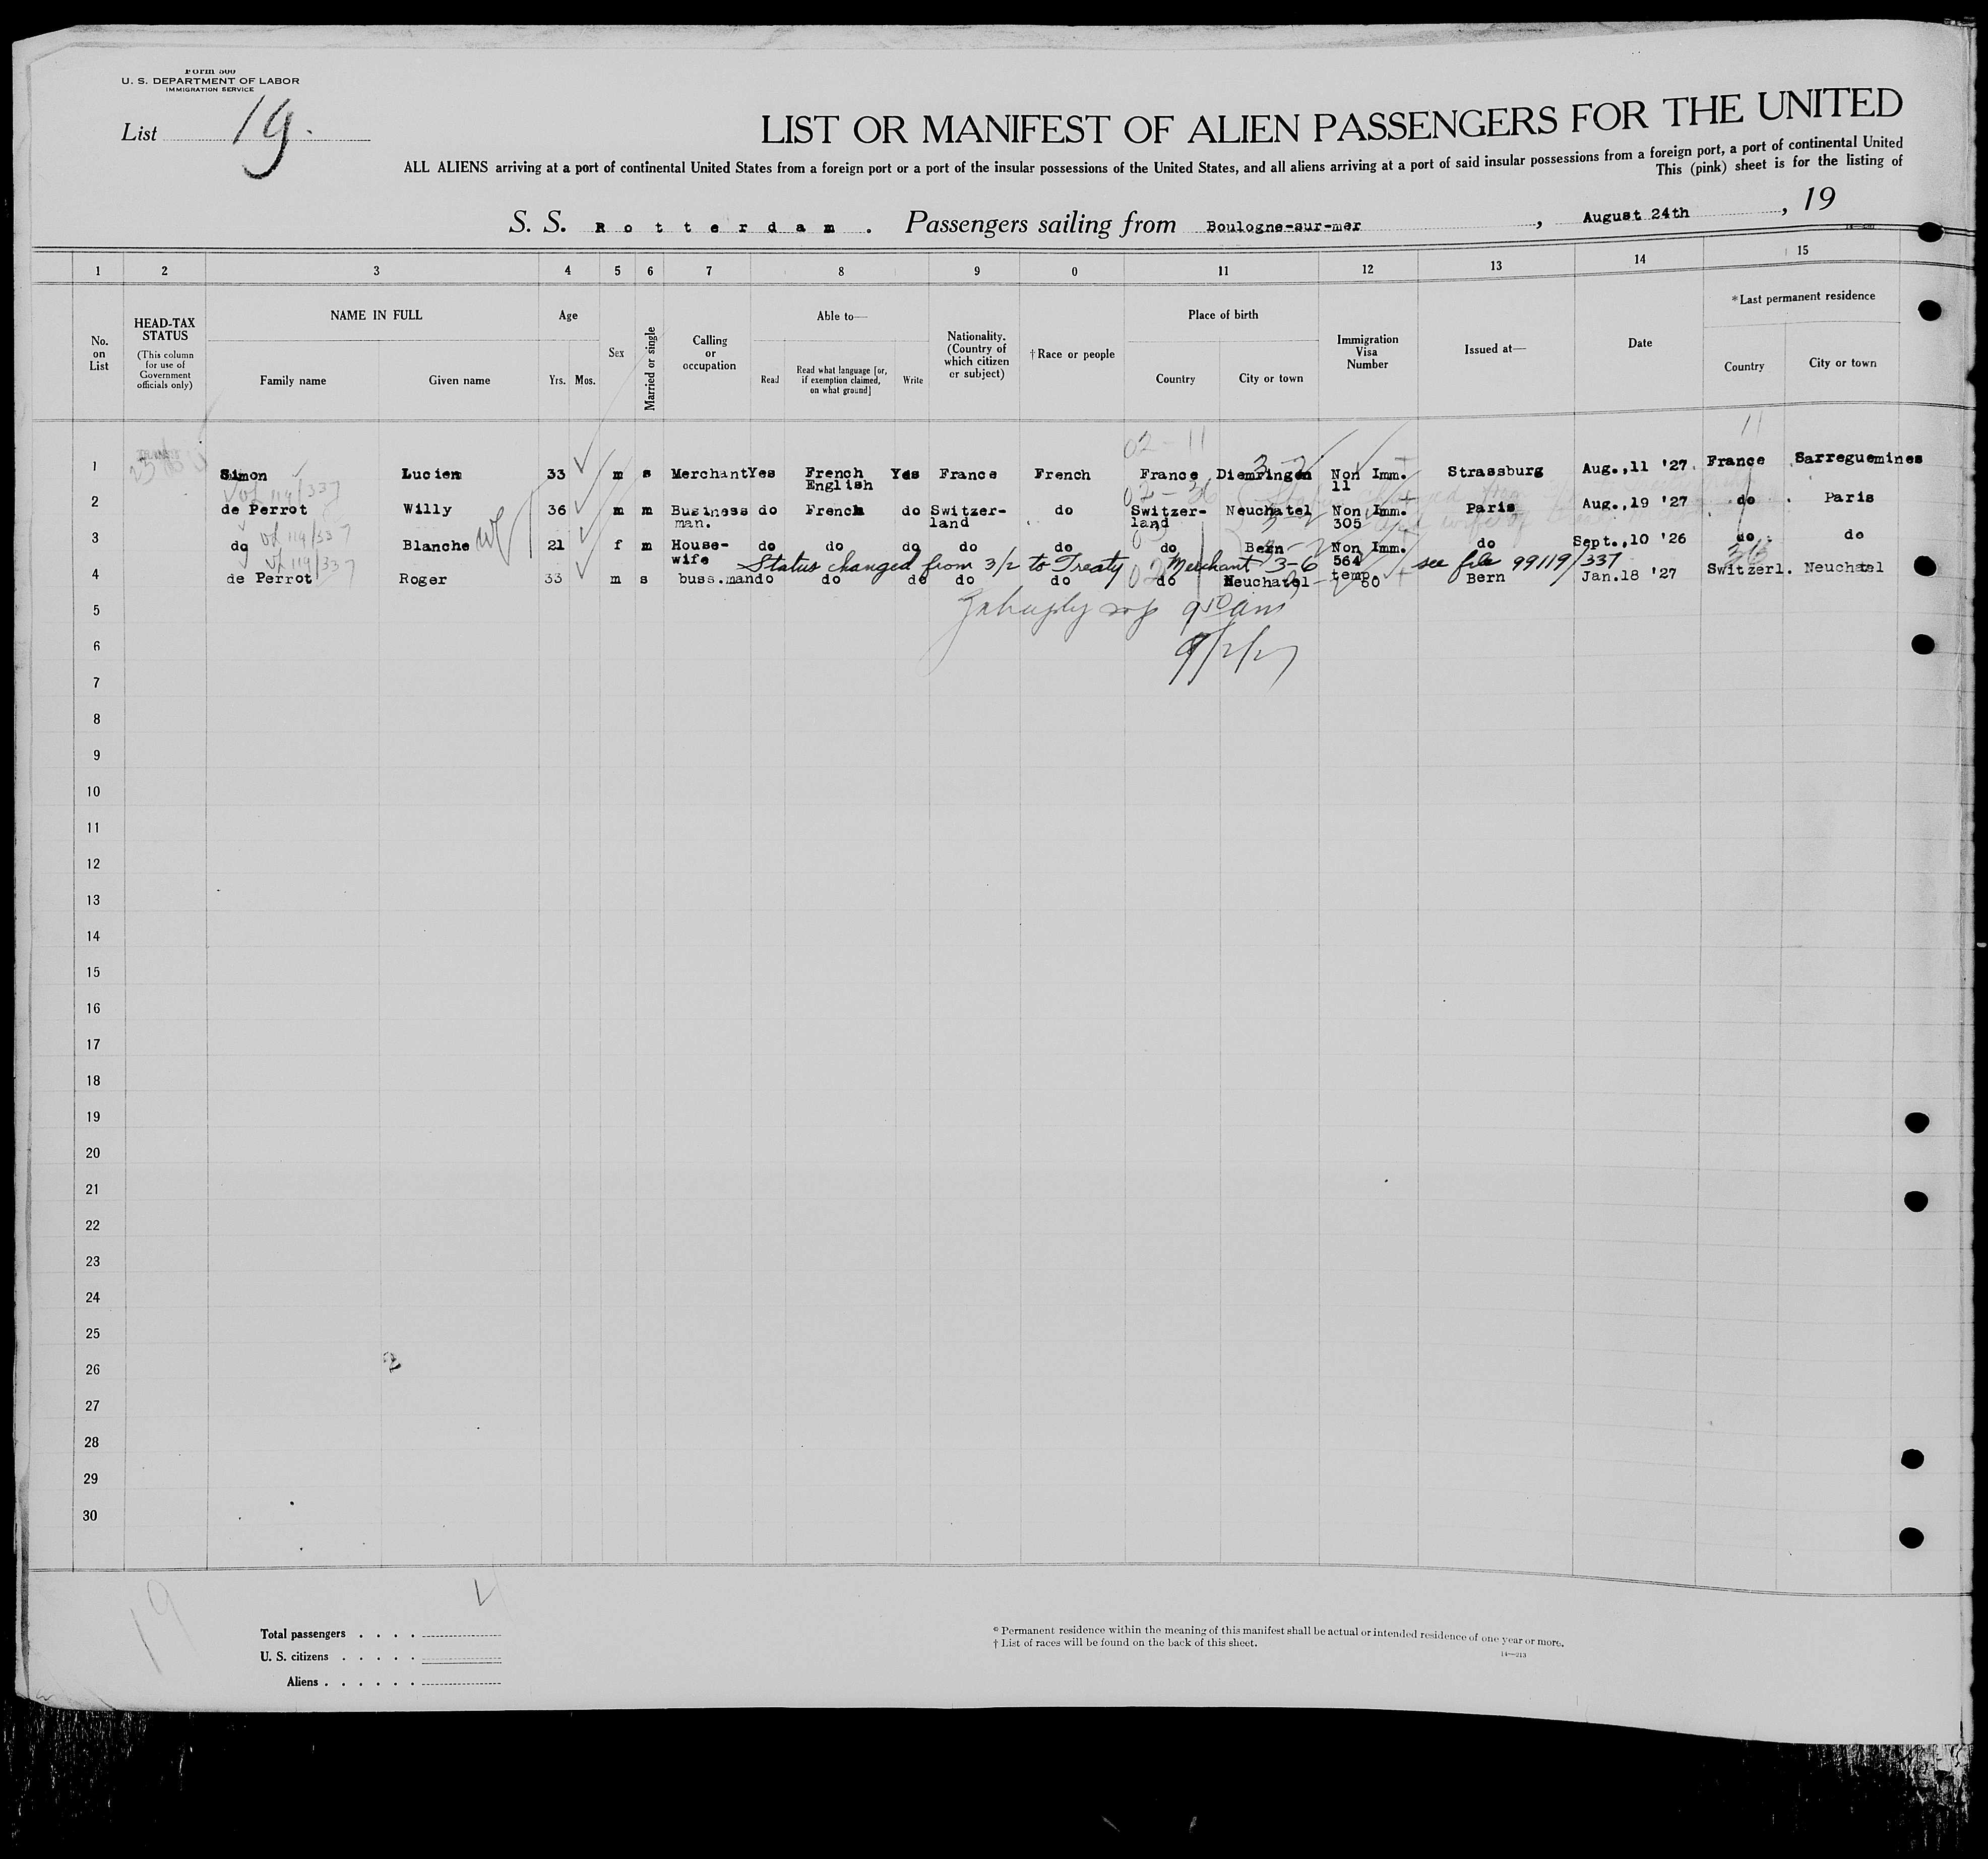 Form 500
U. S. DEPARTMENT OF LABOR
IMMIGRATION SERVICE
List 19.
LIST OR MANIFEST OF ALIEN PASSENGERS FOR THE UNITED
ALL ALIENS arriving at a port of continental United States from a foreign port or a port of the insular possessions of the United States, and all aliens arriving at a port of said insular possessions from a foreign port, a port of continental United
This (pink) sheet is for the listing of
S. S. Rotterdam. Passengers sailing from Boulogne-sur-mer, August 24th, 19
1 2 3 4 5 6 7 8 9 0 11 12 13 14 15
No. on List
HEAD-TAX STATUS (This column for use of Government officials only)
NAME IN FULL
Family name Given name
Age
Yrs. Mos.
Sex
Married or single
Calling or occupation
Able to—
Read Read what language [or, if exemption claimed, on what ground] Write
Nationality. (Country of which citizen or subject)
†Race or people
Place of birth
Country City or town
Immigration Visa Number
Issued at—
Date
*Last permanent residence
Country City or town
02-11 11
1 Simon Lucien 33 m s Merchant Yes French Yes France French France Diemringen Non Imm. Strassburg Aug.,11 '27 France Sarreguemines
English 11
119/337
2 de Perrot Willy 36 m m Business do French do Switzer- do Switzer- Neuchatel Non Imm. Paris Aug.,19 '27 do Paris
man. land land 305
119/337
3 do Blanche 21 f m House- do do do do do do Bern Non Imm. do Sept.,10 '26 do do
wife 564
Status changed from 3/2 to Treaty Merchant 3-6 see file 99119/337
119/337
4 de Perrot Roger 33 m s buss.man do do do do do do Neuchatel temp. 60 Bern Jan.18 '27 Switzerl. Neuchatel
5
9/2/27
6
7
8
9
10
11
12
13
14
15
16
17
18
19
20
21
22
23
24
25
26
27
28
29
30
19
Total passengers . . . .
U. S. citizens . . . . .
Aliens . . . . . .
* Permanent residence within the meaning of this manifest shall be actual or intended residence of one year or more.
† List of races will be found on the back of this sheet.
14—213